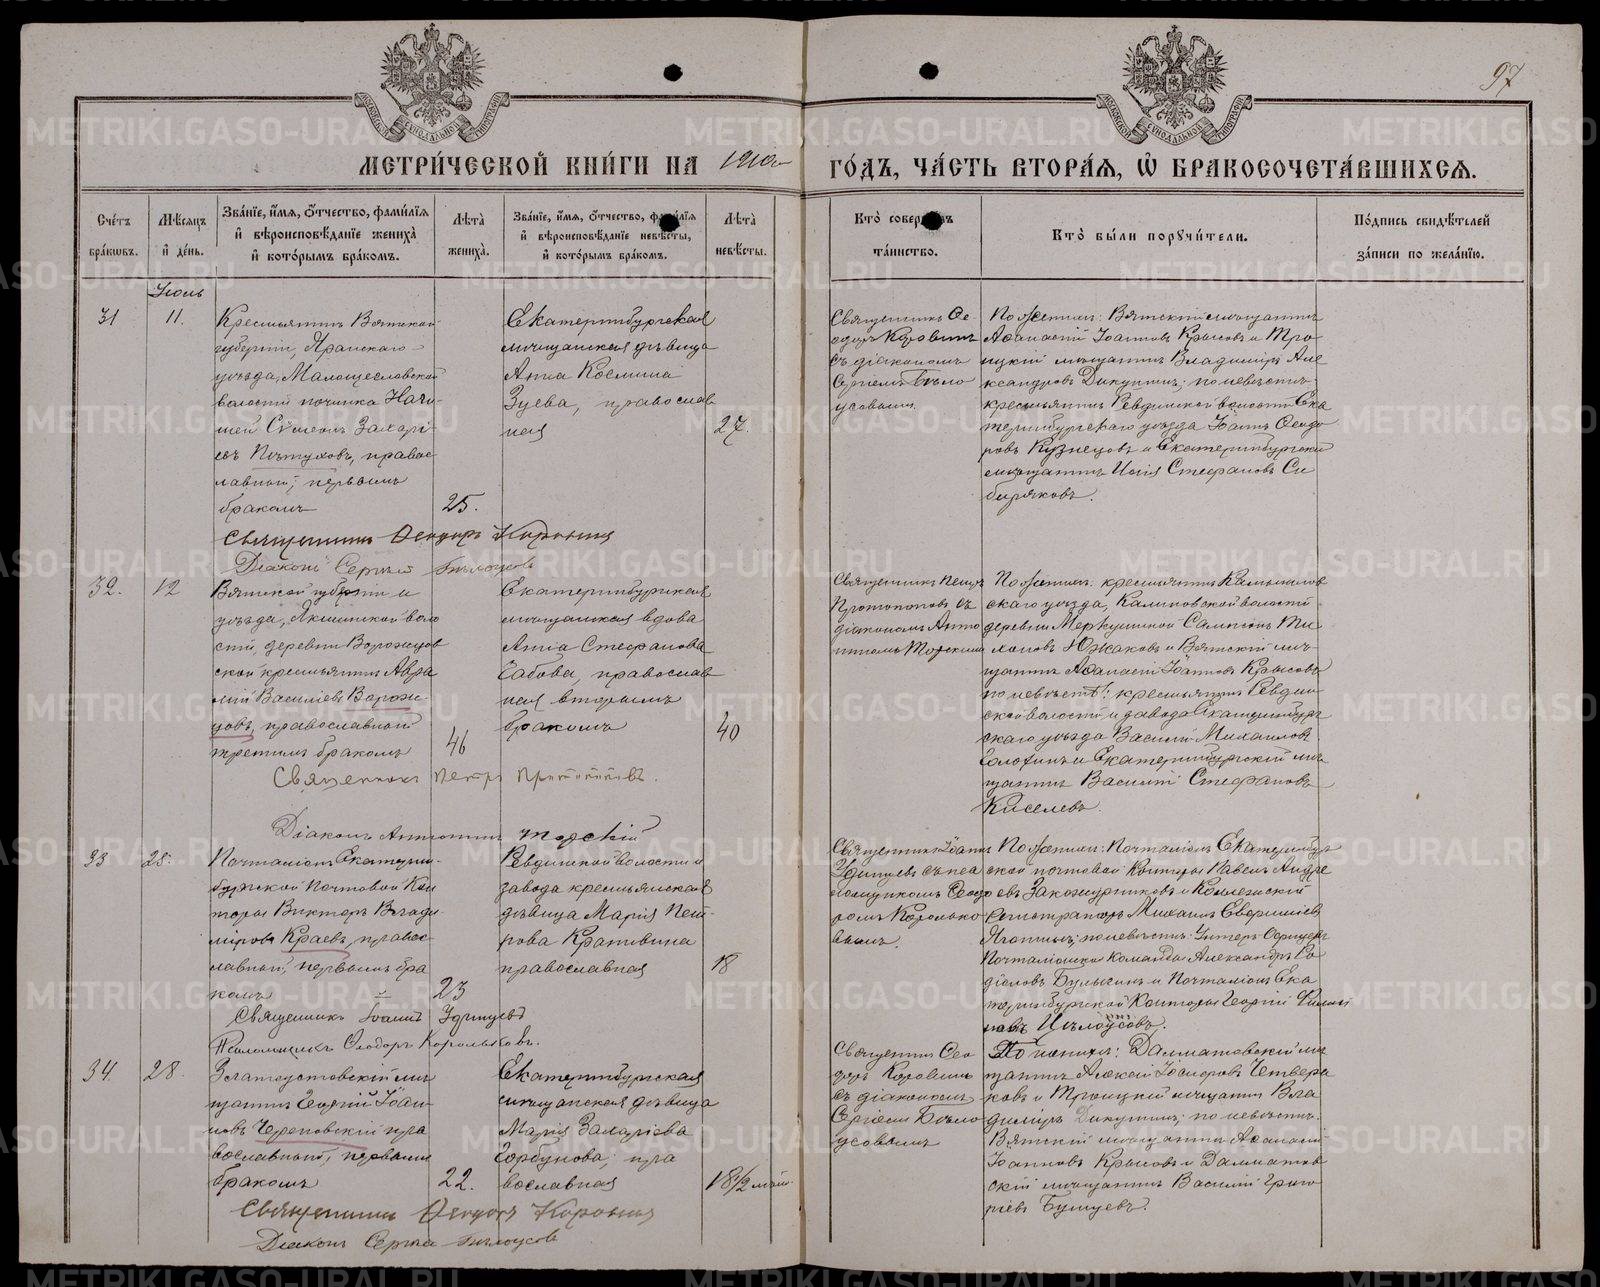 97
МЕТРИ́ЧЕСКОЙ КНИ́ГИ НА 1910
ГО́ДЪ, ЧА́СТЬ ВТОРА́Я, Ѿ БРАКОСОЧЕТА́ВШИХСЯ.
Сче́тъ бра́ковъ.
Мѣ́сяцъ и́ де́нь.
Зва́нїе, и́мя, о́тчество, фами́лїя и́ вѣроисповѣ́данїе жениха̀ и́ кото́рымъ бра́комъ.
Лѣ́та жениха̀.
Зва́нїе, и́мя, о́тчество, фами́лїя и́ вѣроисповѣ́данїе невѣ́сты, и́ кото́рымъ бра́комъ.
Лѣ́та невѣ́сты.
Кто̀ соверша́лъ та́инство.
Кто̀ бы́ли поручи́тели.
По́дпись свидѣ́телей за́писи по жела́нїю.
Іюль
31
11.
Крестьянинъ Вятской
губерніи, Яранскаго
уѣзда,
волости починка
Симеонъ Захарі-
евъ Пѣтуховъ, правос-
лавный, первымъ
бракомъ
25.
Екатеринбургская
мѣщанская дѣвица
Анна Космина
Зуева, православ
ная
27.
Священникъ Ѳе
одоръ Коровинъ
съ діакономъ
Сергіемъ Бѣло
усовымъ.
По женихѣ: Вятскій мѣщанинъ
Аѳанасій Іоанновъ Крысовъ и Тро
ицкій мѣщанинъ Владиміръ Але
ксандровъ Дикушинъ; по невѣстѣ:
крестьянинъ Ревдинской волости Ека
теринбургскаго уѣзда Іоаннъ Ѳеодо
ровъ Кузнецовъ и Екатеринбургскій
мѣщанинъ Стефановъ Си
биряковъ.
Священникъ Ѳеодоръ Коровинъ
Діаконъ Сергій Бѣлоусовъ
32.
12
Вятской губерніи и
уѣзда, Якшинской воло
сти, деревни Ворожцов
ской крестьянинъ Авра
мій Васильевъ Ворож-
цовъ, православный
третьимъ бракомъ
46
Екатеринбургская
мѣщанская вдова
Анна Стефанова
Бабова, православ
ная вторымъ
бракомъ
40
Священникъ Петръ
Протопоповъ съ
діакономъ Анто
ниномъ Торскимъ
По женихѣ: крестьянинъ Камышлов
скаго уѣзда, Калиновской волости
деревни Меркушиной Сампсонъ Ти
хоновъ Южаковъ и Вятскій мѣ-
щанинъ Аѳанасій Іоанновъ Крысовъ
по невѣстѣ: крестьянинъ Ревдин
ской волости и завода Екатеринбург
скаго уѣзда Василій Михаиловъ
и Екатеринбургскій мѣ
щанинъ Василій Стефановъ
Киселевъ.
Священникъ Петръ Протопоповъ.
Діаконъ Антонинъ Торскій
33
25.
Почталіонъ Екатерин-
бургской Почтовой Кон
торы Викторъ Влади-
міровъ Краевъ, правос-
лавный, первымъ бра
комъ
23
Ревдинской волости и
завода крестьянская
дѣвица Марія Пет-
рова Крапивина
православная
18
Священникъ Іоаннъ
Удинцевъ съ пса
ломщикомъ Ѳеодо
ромъ Королько
вымъ.
По женихѣ: Почталіонъ Екатеринбур
ской почтовой Конторы Павелъ Андре
евъ Закожурниковъ и Коллежскій
Регистраторъ Михаилъ
по невѣстѣ: Унтеръ Офицеръ
Почталіонской команды Александръ Ро
діоновъ Булыгинъ и Почталіонъ Ека
теринбургской Конторы Георгій
Священникъ Іоаннъ Удинцевъ
Псаломщикъ Ѳеодоръ Корольковъ.
34.
28.
Златоустовскій мѣ
щанинъ Георгій Іоан-
новъ Череповскій пра
вославный, первымъ
бракомъ
22.
Екатеринбургская
мѣщанская дѣвица
Марія Захаріева
Горбунова, пра
вославная
18 1/2 лѣтъ.
Священникъ Ѳео
доръ Коровинъ
съ діакономъ
Сергіемъ Бѣло
усовымъ
По женихѣ: Далматовскій мѣ
щанинъ Алексій Четвери
ковъ и Троицкій мѣщанинъ Вла
диміръ Дикушинъ; по невѣстѣ:
Вятскій мѣщанинъ Аѳанасій
Іоанновъ Крысовъ и Далматов
скій мѣщанинъ Василій Григо
ріевъ Бушуевъ.
Священникъ Ѳеодоръ Коровинъ
Діаконъ Сергій Бѣлоусовъ
METRIKI.GASO-URAL.RU